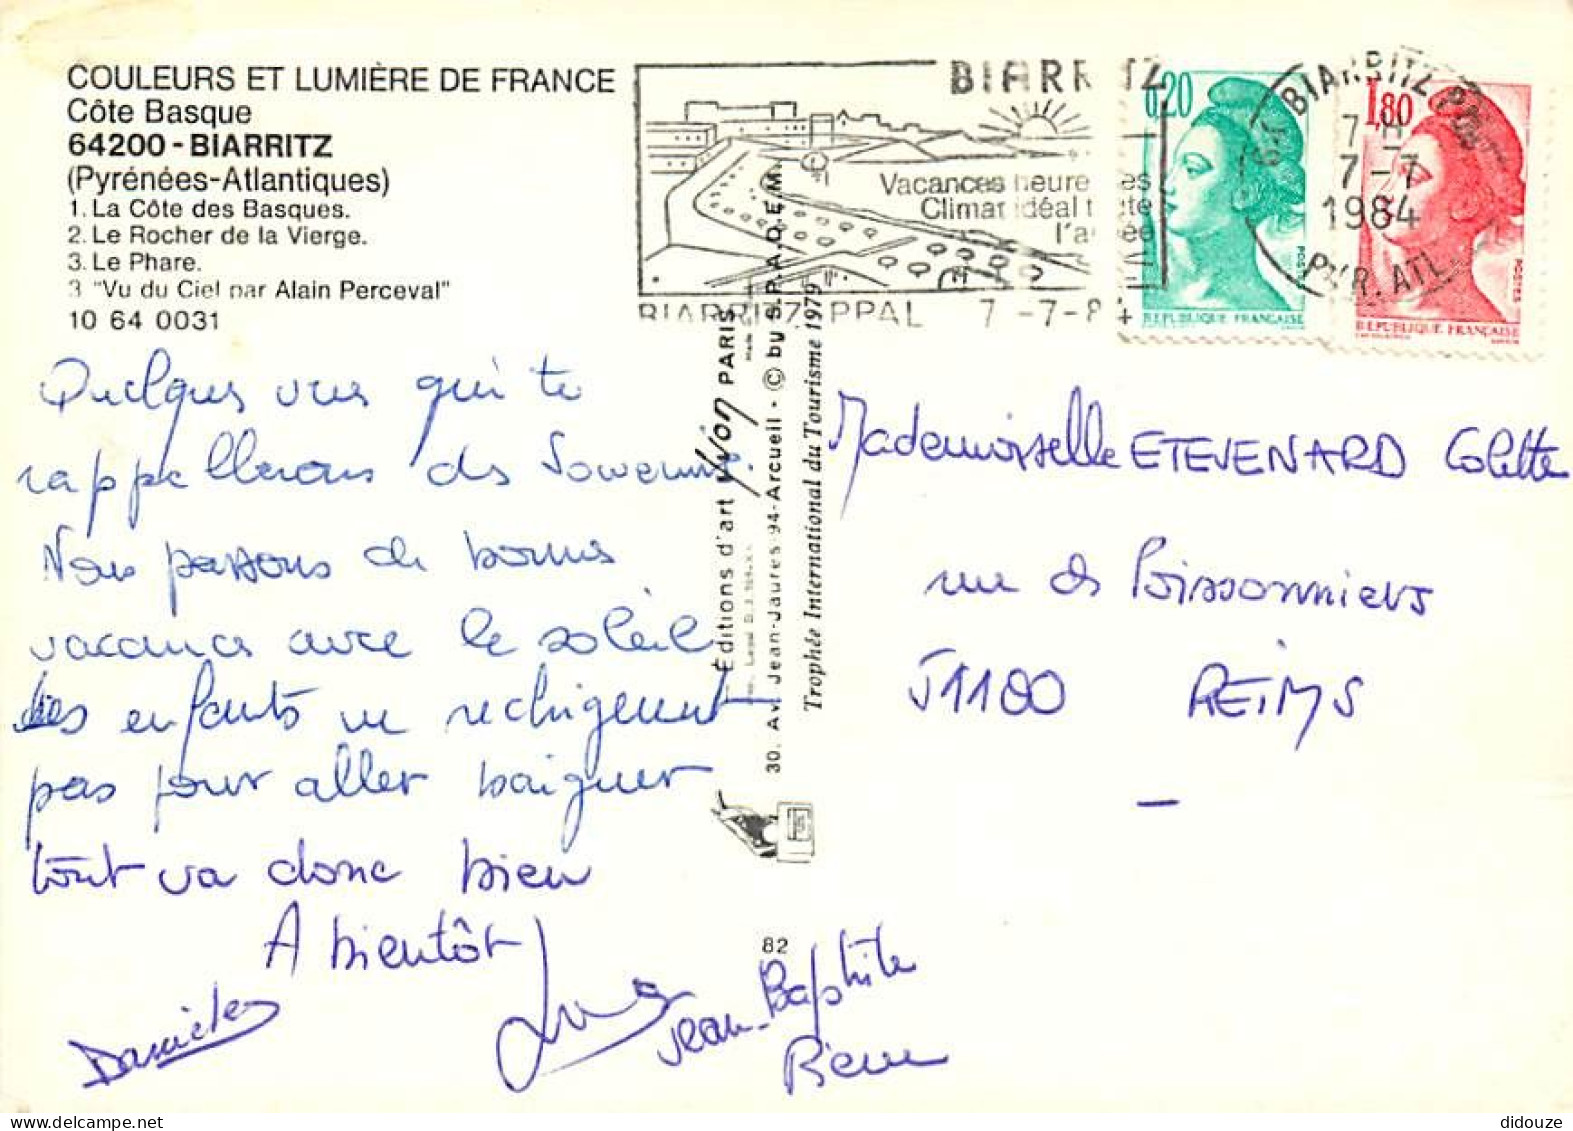 COULEURS ET LUMIÈRE DE FRANCE
Côte Basque
64200 - BIARRITZ
(Pyrénées-Atlantiques)
1. La Côte des Basques.
2. Le Rocher de la Vierge.
3. Le Phare.
3 "Vu du Ciel par Alain Perceval"
10 64 0031
BIARRITZ
Vacances heure es
Climat idéal t te
l'a ée
BIARRITZ PPAL 7-7-84
0,20
REPUBLIQUE FRANÇAISE
POSTES
1,80
REPUBLIQUE FRANÇAISE
POSTES
64 BIARRITZ
7 H
7-7
1984
PYR. ATL
Quelques vues qui te
rappellerons des Souvenirs.
Nous passons de bonnes
vacances avec le soleil
les enfants ne rechignent
pas pour aller baigner
tout va donc bien
A bientôt
Danièle
Jean-Baptiste
Pierre
Éditions d'art Yvon PARIS
30, Av. Jean-Jaurès 94-Arcueil - © by S.P.A.D.E.M.
Trophée International du Tourisme 1979
82
Mademoiselle ETEVENARD Colette
rue de Poissonniers
51100 REIMS
didouze